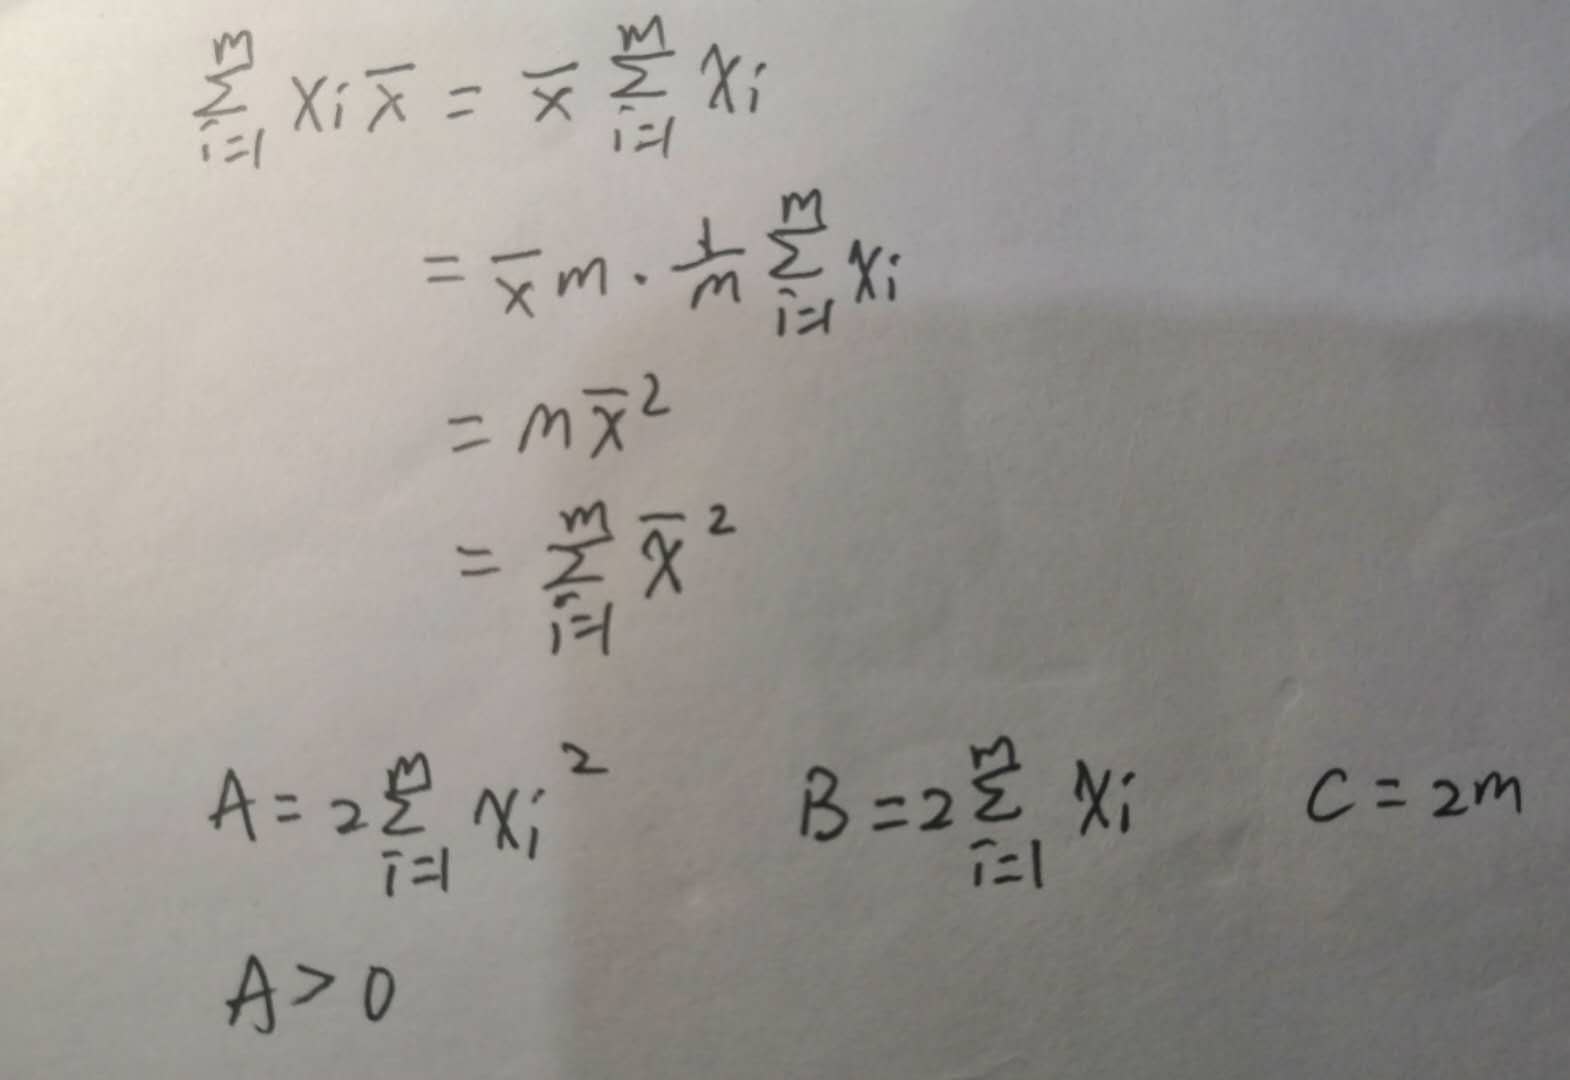 $\sum_{i=1}^{m} x_i \overline{x} = \overline{x} \sum_{i=1}^{m} x_i$
$= \overline{x} m \cdot \frac{1}{m} \sum_{i=1}^{m} x_i$
$= m \overline{x}^2$
$= \sum_{i=1}^{m} \overline{x}^2$
$A = 2 \sum_{i=1}^{m} x_i^2 \quad B = 2 \sum_{i=1}^{m} x_i \quad C = 2m$
$A > 0$